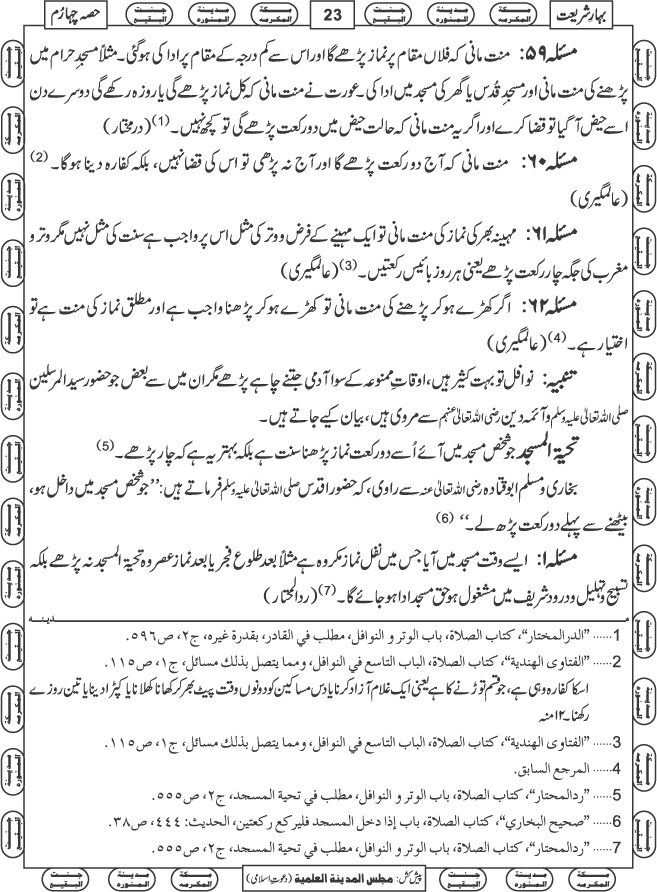 بہارِ شریعت
مکۃ المکرمہ
مدینۃ المنورہ
جنت البقیع
23
مکۃ المکرمہ
مدینۃ المنورہ
جنت البقیع
حصہ چہارم
مسئلہ ۵۹: منت مانی کہ فلاں مقام پر نماز پڑھے گا اور اس سے کم درجہ کے مقام پر ادا کی ہوگئی۔ مثلاً مسجدِ حرام میں
پڑھنے کی منت مانی اور مسجدِ قُدس یا گھر کی مسجد میں ادا کی۔ عورت نے منت مانی کہ کل نماز پڑھے گی یا روزہ رکھے گی دوسرے دن
اسے حیض آ گیا تو قضا کرے اور اگر یہ منت مانی کہ حالت حیض میں دو رکعت پڑھے گی تو کچھ نہیں۔ (1) (درمختار)
مسئلہ ۶۰: منت مانی کہ آج دو رکعت پڑھے گا اور آج نہ پڑھی تو اس کی قضا نہیں، بلکہ کفارہ دینا ہوگا۔ (2)
(عالمگیری)
مسئلہ ۶۱: مہینہ بھر کی نماز کی منت مانی تو ایک مہینے کے فرض و وتر کی مثل اس پر واجب ہے سنت کی مثل نہیں مگر وتر و
مغرب کی جگہ چار رکعت پڑھے یعنی ہر روز بائیس رکعتیں۔ (3) (عالمگیری)
مسئلہ ۶۲: اگر کھڑے ہو کر پڑھنے کی منت مانی تو کھڑے ہو کر پڑھنا واجب ہے اور مطلق نماز کی منت ہے تو
اختیار ہے۔ (4) (عالمگیری)
تنبیہ: نوافل تو بہت کثیر ہیں، اوقاتِ ممنوعہ کے سوا آدمی جتنے چاہے پڑھے مگر ان میں سے بعض جو حضور سید المرسلین
صلی اللہ تعالیٰ علیہ وسلم و آئمہ دین رضی اللہ تعالیٰ عنہم سے مروی ہیں، بیان کیے جاتے ہیں۔
تحیۃ المسجد جو شخص مسجد میں آئے اُسے دو رکعت نماز پڑھنا سنت ہے بلکہ بہتر یہ ہے کہ چار پڑھے۔ (5)
بخاری و مسلم ابوقتادہ رضی اللہ تعالیٰ عنہ سے راوی، کہ حضور اقدس صلی اللہ تعالیٰ علیہ وسلم فرماتے ہیں: ’’جو شخص مسجد میں داخل ہو،
بیٹھنے سے پہلے دو رکعت پڑھ لے۔‘‘ (6)
مسئلہ ۱: ایسے وقت مسجد میں آیا جس میں نفل نماز مکروہ ہے مثلاً بعد طلوع فجر یا بعد نماز عصر وہ تحیۃ المسجد نہ پڑھے بلکہ
تسبیح و تہلیل و درود شریف میں مشغول ہو حق مسجد ادا ہو جائے گا۔ (7) (ردالمحتار)
1...... ”الدرالمختار“، کتاب الصلاة، باب الوتر و النوافل، مطلب في القادر، بقدرة غيره، ج۲، ص۵۹٦.
2...... ”الفتاوی الهندية“، کتاب الصلاة، الباب التاسع في النوافل، ومما يتصل بذلك مسائل، ج۱، ص۱۱۵.
اسکا کفارہ وہی ہے، جو قسم توڑنے کا ہے یعنی ایک غلام آزاد کرنا یا دس مساکین کو دونوں وقت پیٹ بھر کر کھانا کھلانا یا کپڑا دینا یا تین روزے
رکھنا۔ ۱۲ منہ
3...... ”الفتاوی الهندية“، کتاب الصلاة، الباب التاسع في النوافل، ومما يتصل بذلك مسائل، ج۱، ص۱۱۵.
4...... المرجع السابق.
5...... ”ردالمحتار“، کتاب الصلاة، باب الوتر و النوافل، مطلب في تحية المسجد، ج۲، ص۵۵۵.
6...... ”صحيح البخاري“، کتاب الصلاة، باب إذا دخل المسجد فليركع ركعتين، الحديث: ٤٤٤، ص۳۸.
7...... ”ردالمحتار“، کتاب الصلاة، باب الوتر و النوافل، مطلب في تحية المسجد، ج۲، ص۵۵۵.
مکۃ المکرمہ
مدینۃ المنورہ
جنت البقیع
پیش کش: مجلس المدینة العلمیة (دعوتِ اسلامی)
مکۃ المکرمہ
مدینۃ المنورہ
جنت البقیع